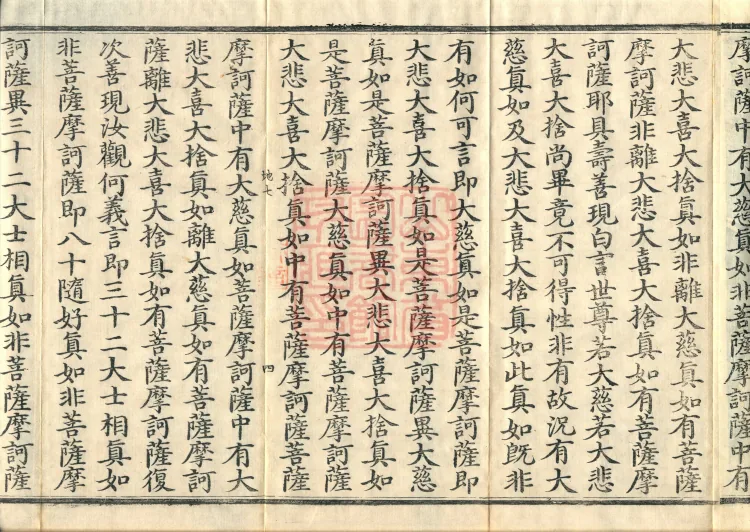 摩訶薩中有大慈真如非菩薩摩訶薩中有
大悲大喜大捨真如非離大慈真如有菩薩
摩訶薩非離大悲大喜大捨真如有菩薩摩
訶薩耶具壽善現白言世尊若大慈若大悲
大喜大捨尚畢竟不可得性非有故況有大
慈真如及大悲大喜大捨真如此真如既非
有如何可言即大慈真如是菩薩摩訶薩即
大悲大喜大捨真如是菩薩摩訶薩異大慈
真如是菩薩摩訶薩異大悲大喜大捨真如
是菩薩摩訶薩大慈真如中有菩薩摩訶薩
大悲大喜大捨真如中有菩薩摩訶薩菩薩
地七
四
摩訶薩中有大慈真如菩薩摩訶薩中有大
悲大喜大捨真如離大慈真如有菩薩摩訶
薩離大悲大喜大捨真如有菩薩摩訶薩復
次善現汝觀何義言即三十二大士相真如
非菩薩摩訶薩即八十隨好真如非菩薩摩
訶薩異三十二大士相真如非菩薩摩訶薩